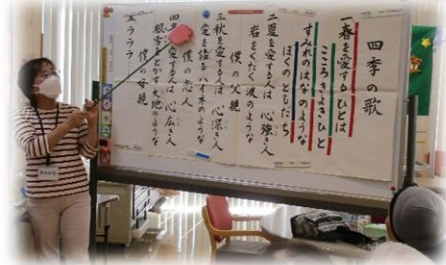 四季の歌
一春を愛するひとは
こころきよきひと
すみれのはなのような
ぼくのともだち
二夏を愛する人は 心強き人
岩をくだく波のような
僕の父親
三秋を愛する人は 心深き人
愛を語るハイネのような
僕の恋人
四冬を愛する人は 心広き人
根雪をとかす大地のような
僕の母親
五ラララ